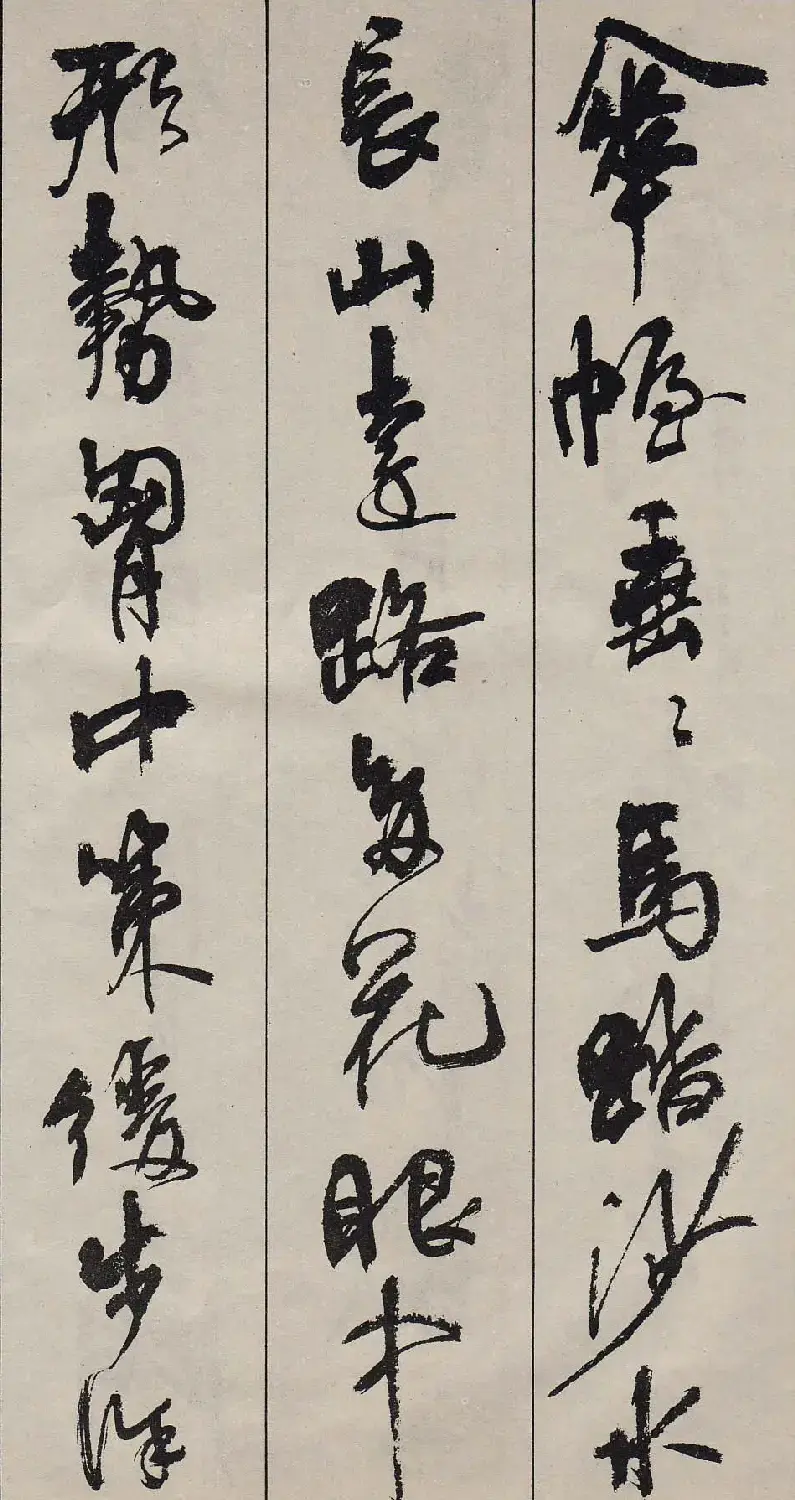 傘幄垂〻馬踏沙水
長山遠路多花眼中
形勢胷中策緩步徐